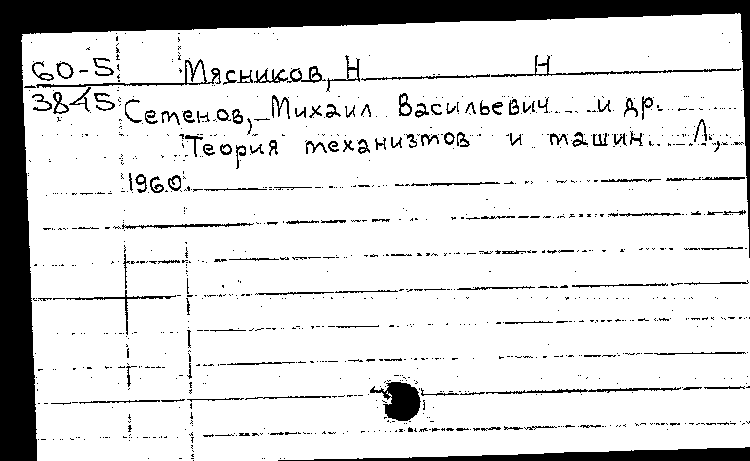 60-5 Мясников, Н Н
3845 Семенов, Михаил Васильевич и др.
Теория механизмов и машин. Л,
1960.